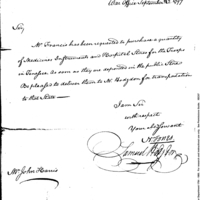 War Office September 1797
Sir,
Mr Francis has been requested to purchase a quantity
of Medicines Instruments and Hospital Stores for the Troops
in Tennessee. As soon as they are deposited in the public Store
be pleased to deliver them to Mr Hodgdon for transportation
to that State
I am Sir
with respect
Your Obt Servant
Samuel Hodgdon
Mr John Harris